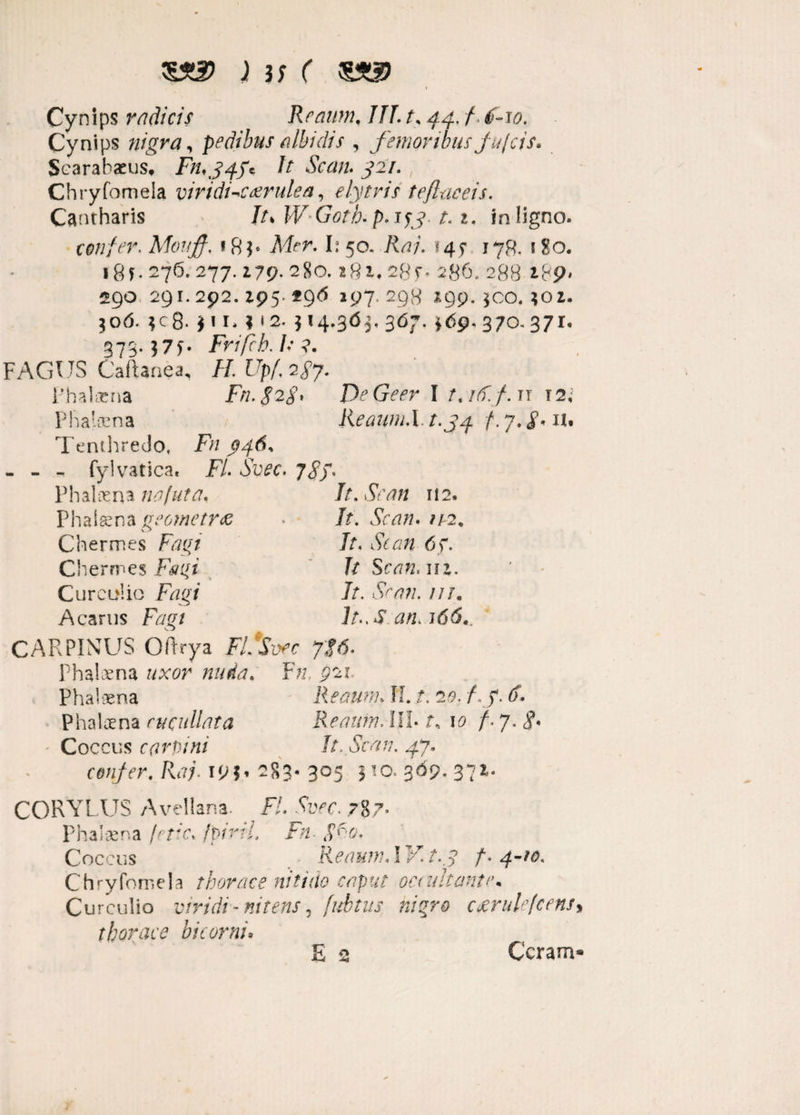 ) 35 (
Cynips radicis Reaum. III. t. 44. f. 6-10.
Cynips nigra, pedibus albidis, femoribus fuſcis.
Scarabæus. Fn. 345. It Scan. 321.
Chryſomela viridi-cærulea, elytris teſtaceis.
Cantharis It. W-Goth. p. 153. t. 2. in ligno.
confer. Mouff. 183. Mer. I: 50. Raj. 145. 178. 180.
185. 276. 277. 279. 280. 282. 285. 286. 288 289.
290 291. 292. 295. 296 297. 298 299. 300. 302.
306. 308. 311. 312. 314. 363. 367. 369. 370. 371.
373. 375. Friſch. I: 3.
FAGUS Caſtanea, H. Upſ. 287.
Phalæna Fn. 828. De Geer I t. 16. f. 11 12;
Phalæna Reaum.I. t.34 f. 7. 8. 11.
Tenthredo, Fn 946.
- - - ſylvatica. Fl. Svec. 785.
Phalæna naſuta. It. Scan 112.
Phalæna geometræ It. Scan. 112.
Chermes Fagi It. Scan 65.
Chermes Fagi It Scan. 112.
Curculio Fagi It. Scan. 111.
Acarus Fagi It. S an. 166.
CARPINUS Oſtrya Fl. Svec 786.
Phalæna uxor nuda. Fn. 921.
Phalæna Reaum. II. t. 29. f. 5. 6.
Phalæna cucullata Reaum. III. t. 10 f. 7. 8.
Coccus carpini It. Scan. 47.
confer. Raj. 193. 283. 305 310. 369. 372.
CORYLUS Avellana. Fl. Svec. 787.
Phalæna ſetic. ſpiril. Fn. 860.
Coccus Reaum. IV. t. 3 f. 4-10.
Chryſomela thorace nitido caput occultante.
Curculio viridi-nitens, ſubtus nigro cæruleſcens,
thorace bicorni.
E 2 Ceram-